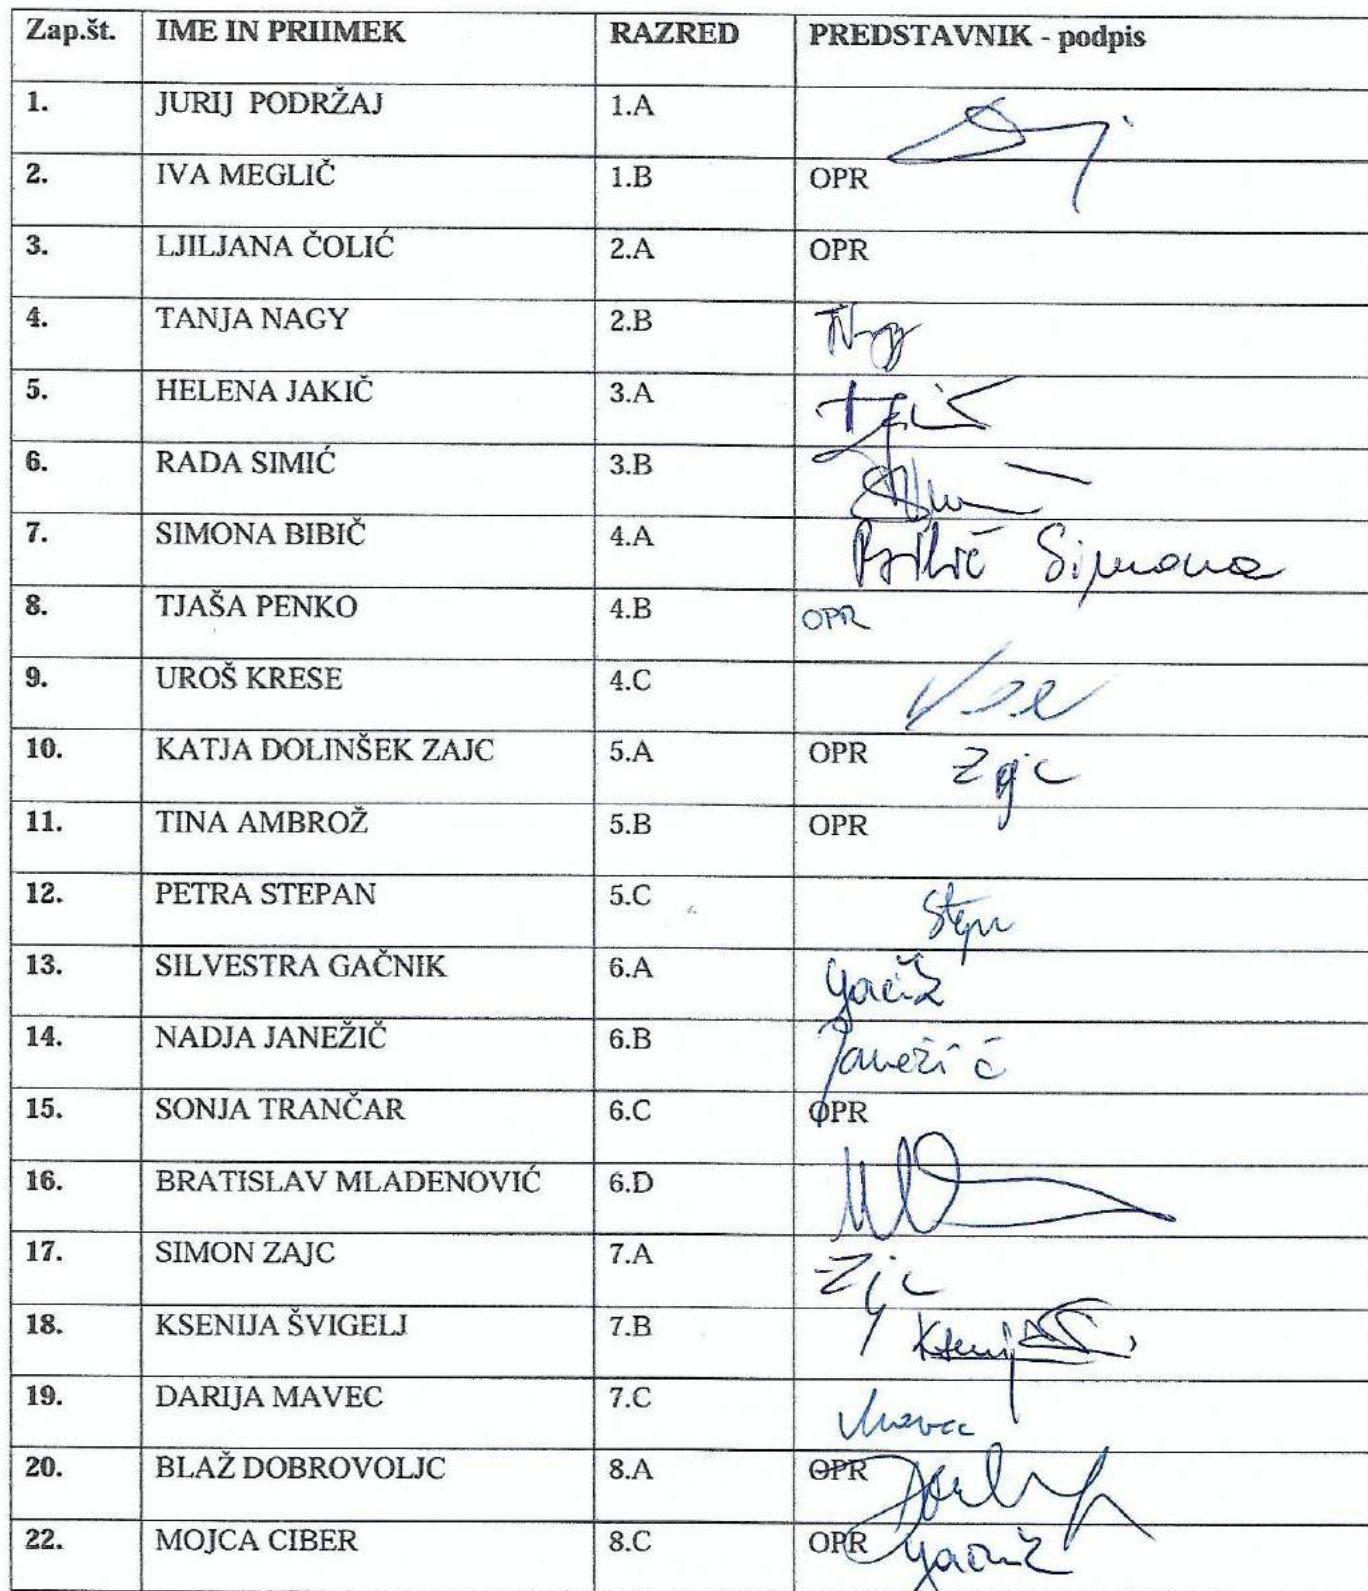 Zap.št. IME IN PRIIMEK RAZRED PREDSTAVNIK - podpis
1. JURIJ PODRŽAJ 1.A
2. IVA MEGLIČ 1.B OPR
3. LJILJANA ČOLIĆ 2.A OPR
4. TANJA NAGY 2.B
5. HELENA JAKIČ 3.A
6. RADA SIMIĆ 3.B
7. SIMONA BIBIČ 4.A Bibič Simona
8. TJAŠA PENKO 4.B OPR
9. UROŠ KRESE 4.C
10. KATJA DOLINŠEK ZAJC 5.A OPR Zajc
11. TINA AMBROŽ 5.B OPR
12. PETRA STEPAN 5.C
13. SILVESTRA GAČNIK 6.A
14. NADJA JANEŽIČ 6.B Janežič
15. SONJA TRANČAR 6.C OPR
16. BRATISLAV MLADENOVIĆ 6.D
17. SIMON ZAJC 7.A
18. KSENIJA ŠVIGELJ 7.B
19. DARIJA MAVEC 7.C Mavec
20. BLAŽ DOBROVOLJC 8.A OPR
22. MOJCA CIBER 8.C OPR